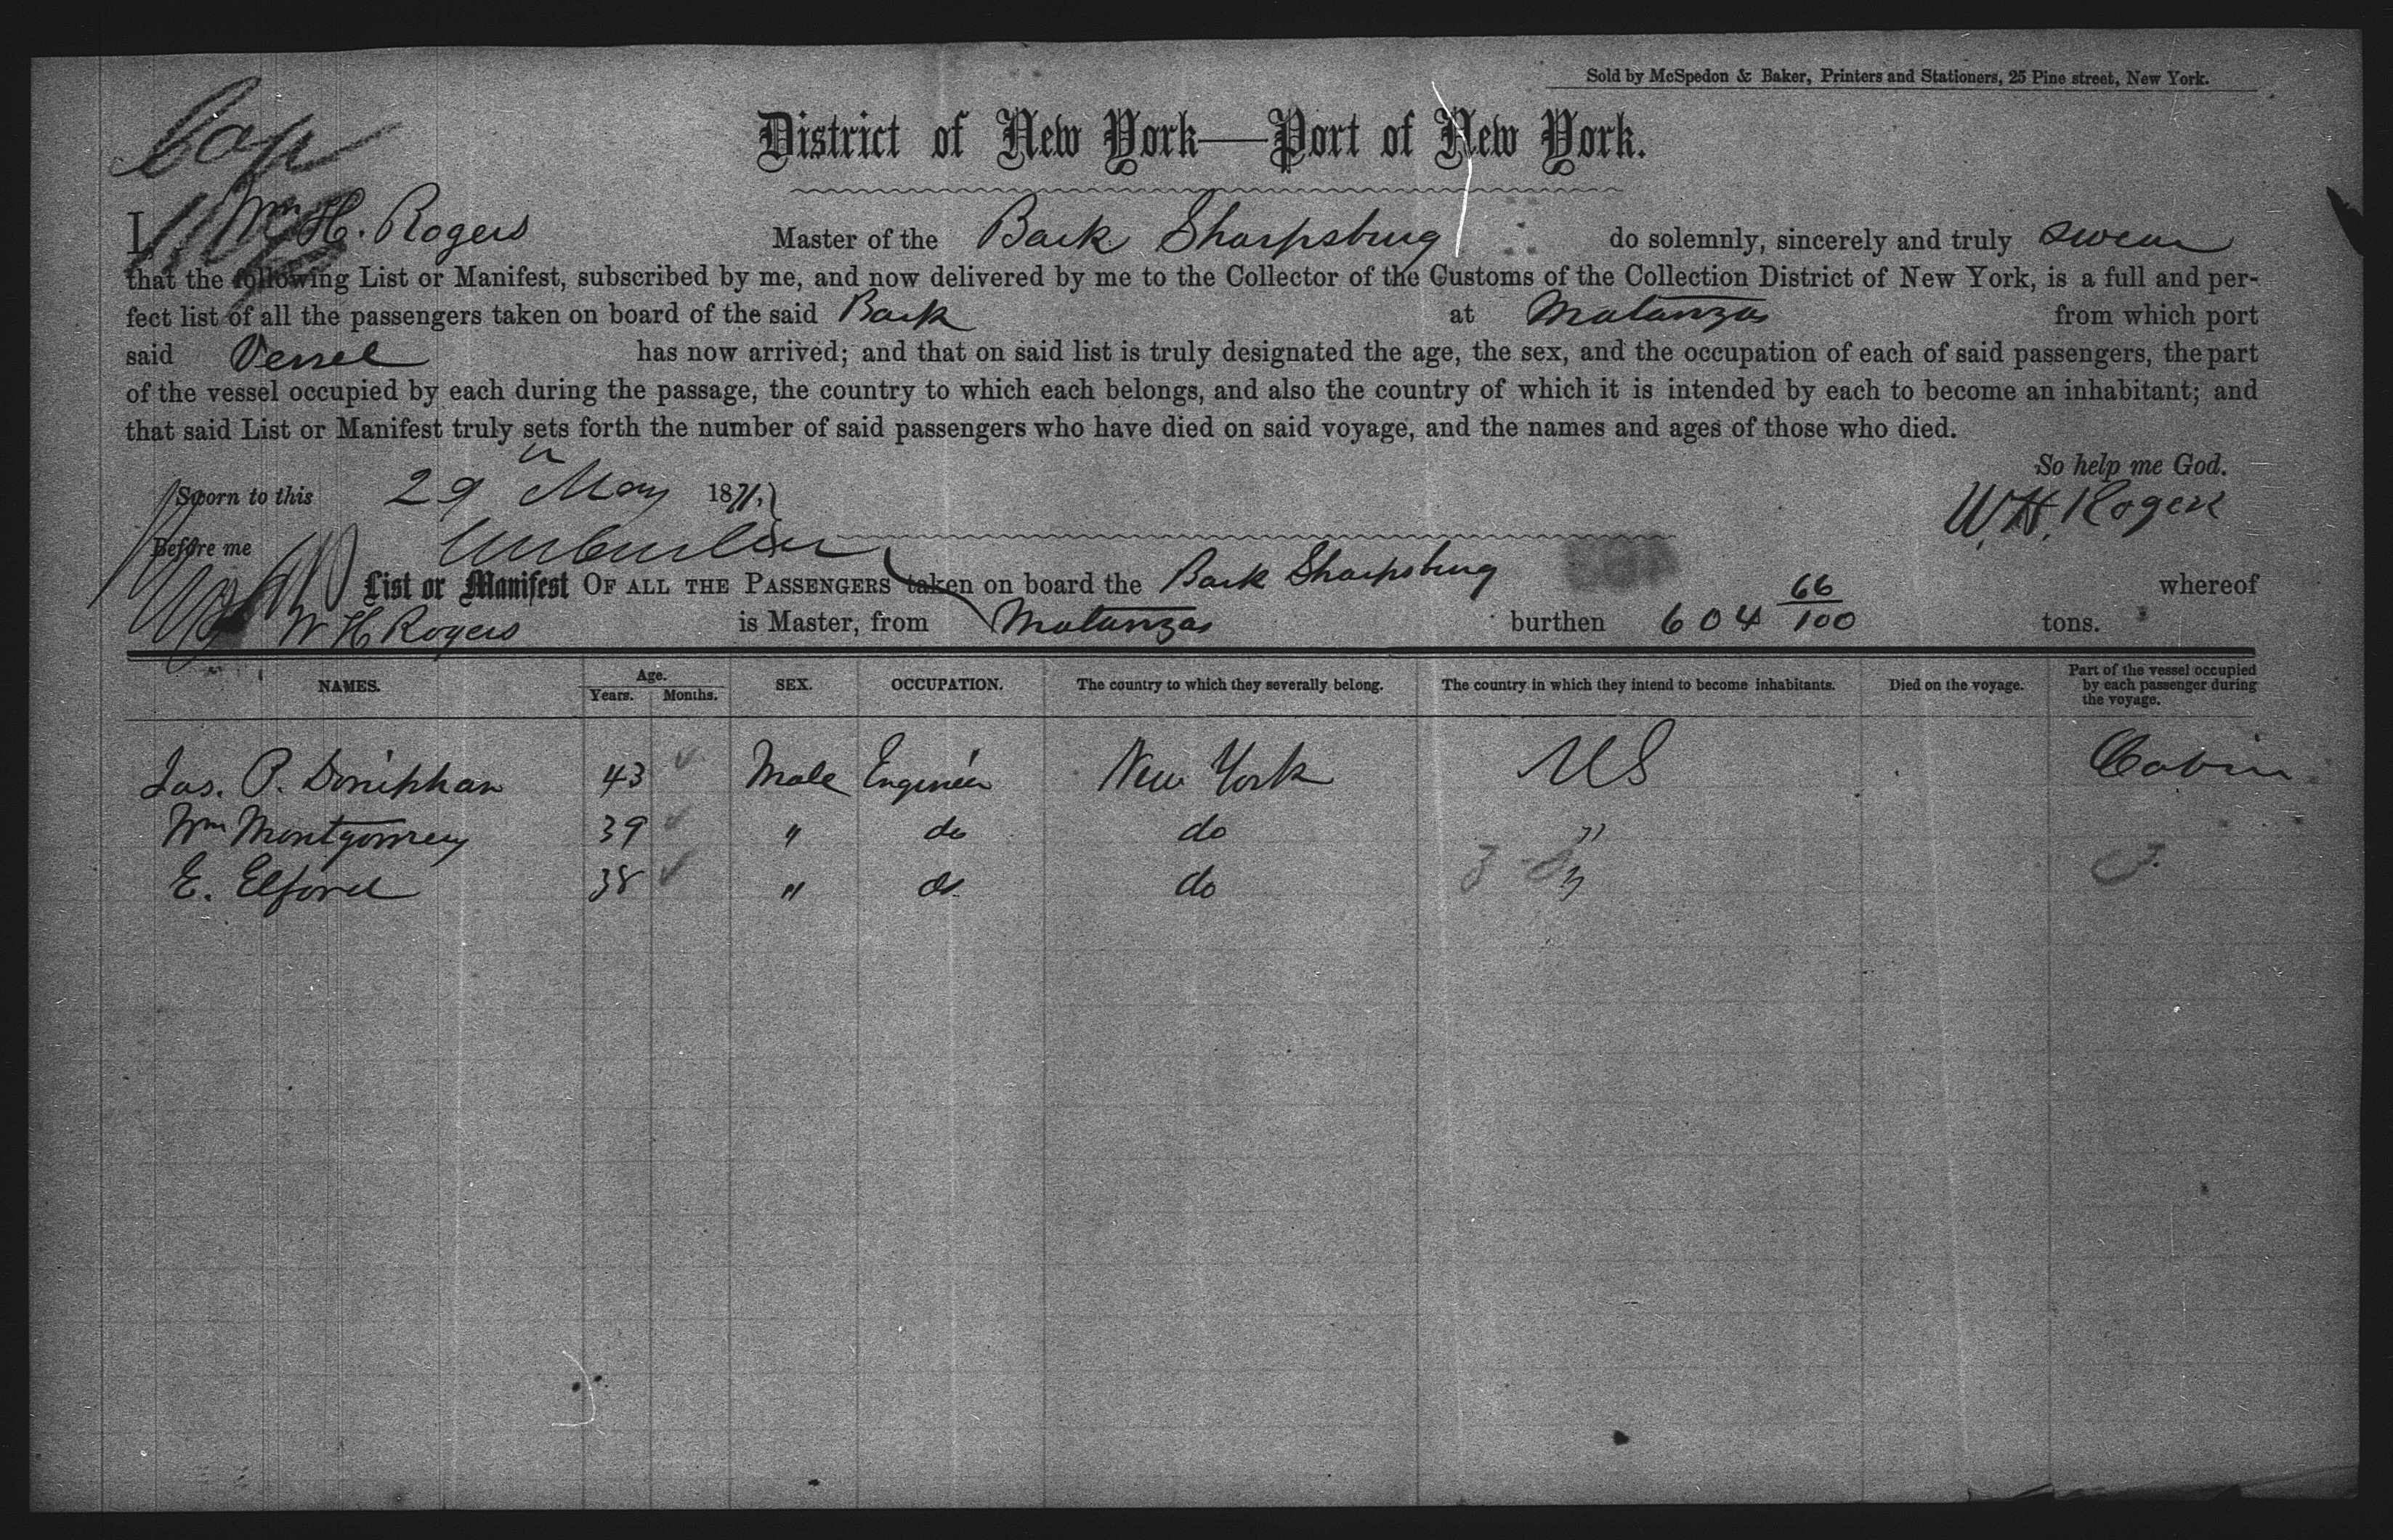 Sold by McSpedon & Baker, Printers and Stationers, 25 Pine street, New York.
District of New York—Port of New York.
I, Wm H. Rogers Master of the Bark Sharpsburg do solemnly, sincerely and truly swear
that the following List or Manifest, subscribed by me, and now delivered by me to the Collector of the Customs of the Collection District of New York, is a full and per-
fect list of all the passengers taken on board of the said Bark at Matanzas from which port
said Vessel has now arrived; and that on said list is truly designated the age, the sex, and the occupation of each of said passengers, the part
of the vessel occupied by each during the passage, the country to which each belongs, and also the country of which it is intended by each to become an inhabitant; and
that said List or Manifest truly sets forth the number of said passengers who have died on said voyage, and the names and ages of those who died.
So help me God.
Sworn to this 29 May 1871. W. H. Rogers
Before me
List or Manifest OF ALL THE PASSENGERS taken on board the Bark Sharpsburg whereof
W H Rogers is Master, from Matanzas burthen 604 66/100 tons.
NAMES. Age. Years. Months. SEX. OCCUPATION. The country to which they severally belong. The country in which they intend to become inhabitants. Died on the voyage. Part of the vessel occupied by each passenger during the voyage.
Jas. P. Doniphan 43 Male Engineer New York US Cabin
Wm Montgomrey 39 " do do "
E. Elford 38 " do do "